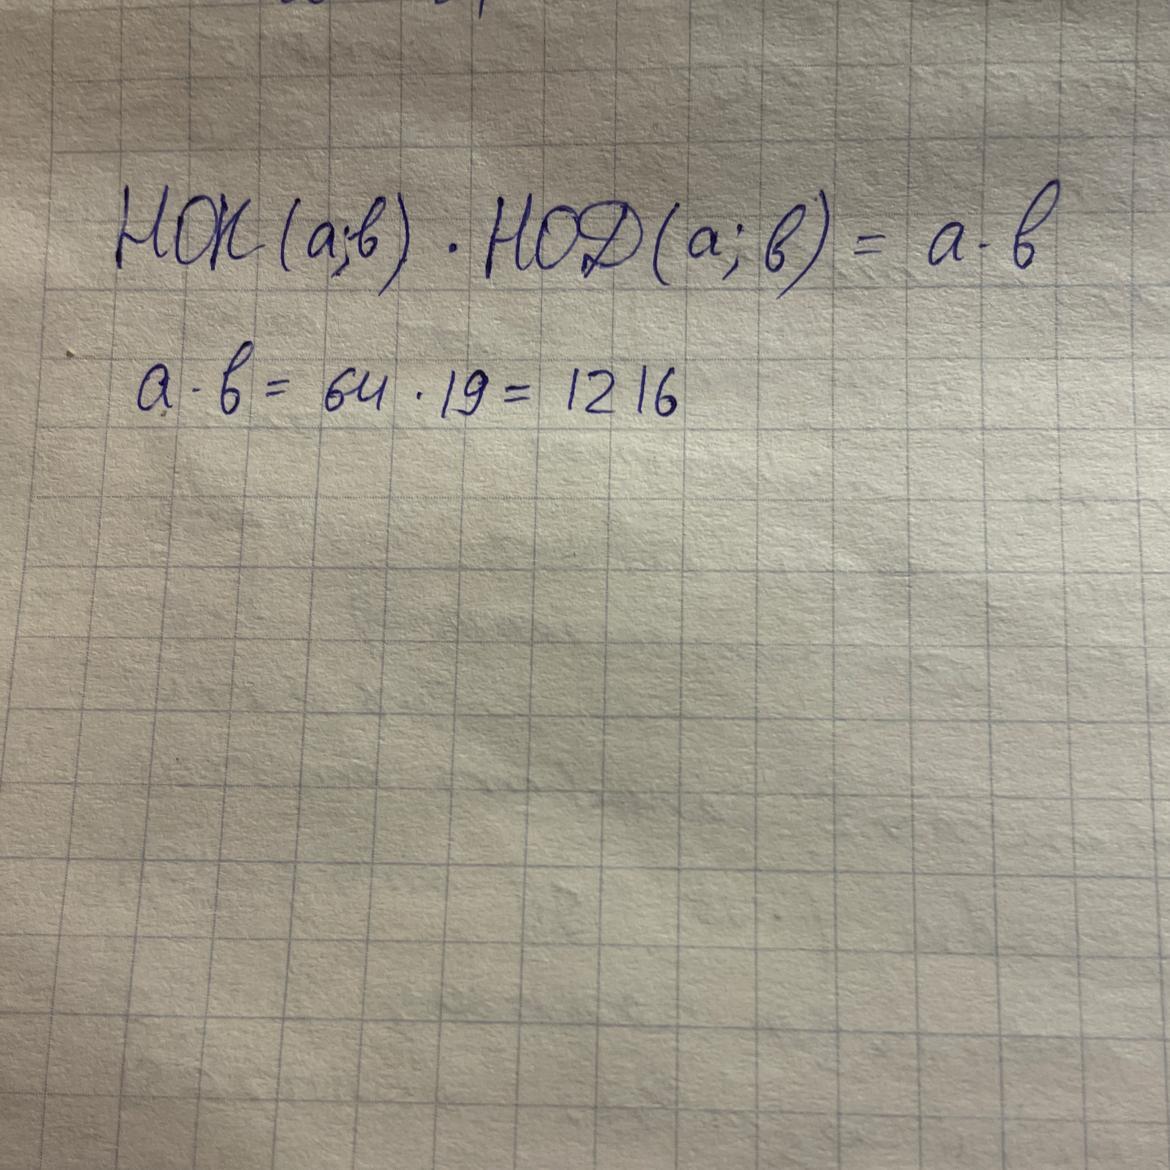 НОК (а;в) · НОД (а; в) = а · в
а · в = 64 · 19 = 1216